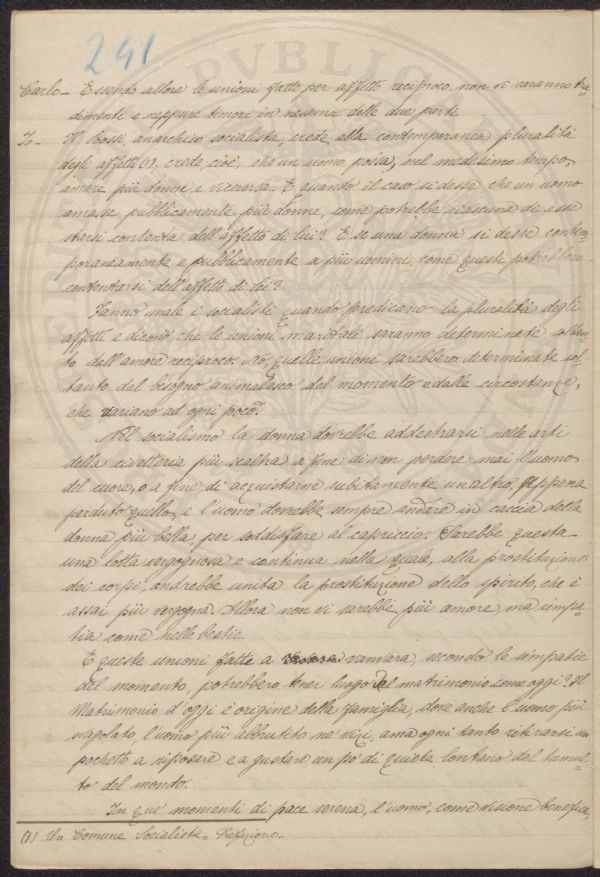 241
Carlo – Essendo allora le unioni fatte per affetto reciproco, non vi saranno tra-
dimenti e neppure timori in nessuna delle due parti.
Io – Il Rossi, anarchico socialista, crede alla contemporanea pluralità
degli affetti (1), crede, cioè, che un uomo possa, nel medesimo tempo,
amare più donne, e viceversa. E quando il caso si desse che un uomo
amasse pubblicamente più donne, come potrebbe ciascuna di esse
starsi contenta dell'affetto di lui? E se una donna si desse contem-
poraneamente e pubblicamente a più uomini, come questi potrebbero
contentarsi dell'affetto di lei?
Fanno male i socialisti quando predicano la pluralità degli
affetti e dicono che le unioni maritali saranno determinate soltan-
to dall'amore reciproco. No, quelle unioni sarebbero determinate sol-
tanto dal bisogno animalesco del momento e dalle circostanze,
che variano ad ogni poco.
Nel socialismo la donna dovrebbe addestrarsi nelle arti
della civetteria più scaltra a fine di non perdere mai l'uomo
del cuore, o a fine di acquistarne subitamente un altro, appena
perduto quello, e l'uomo dovrebbe sempre andare in caccia della
donna più bella, per soddisfare al capriccio. Sarebbe questa
una lotta vergognosa e continua nella quale, alla prostituzione
dei corpi, andrebbe unita la prostituzione dello spirito, che è
assai più vergogna. Allora non vi sarebbe più amore, ma simpa-
tia come nelle bestie.
E queste unioni fatte a vanvara, secondo le simpatie
del momento, potrebbero tener luogo del matrimonio come oggi? Il
Matrimonio d'oggi è origine della famiglia, dove anche l'uomo più
scapolato, l'uomo più abbrutito ne' vizi, ama ogni tanto ritirarsi un
pochetto a riposare e a gustare un po' di quiete, lontano dal tumul-
to del mondo.
In que' momenti di pace serena, l'uomo, come visione benefica,
(1) Un Comune Socialista – Prefazione –